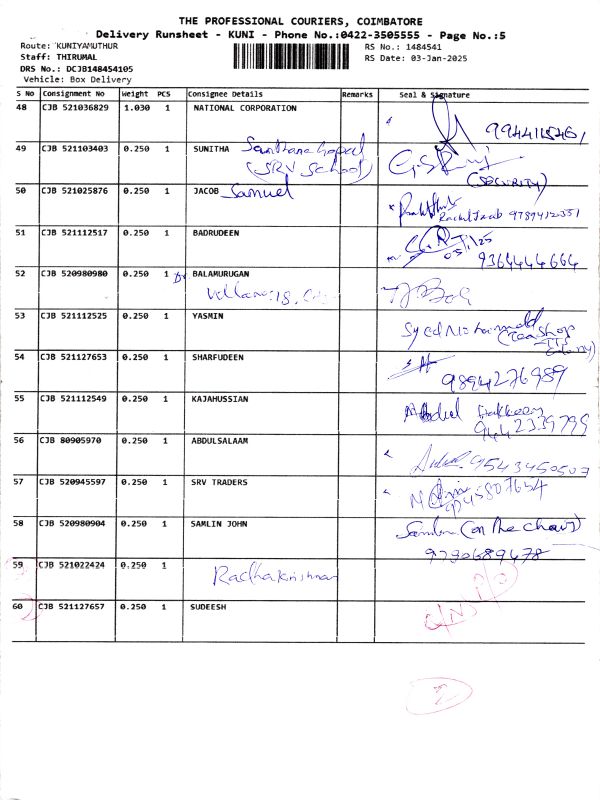 THE PROFESSIONAL COURIERS, COIMBATORE
Delivery Runsheet - KUNI - Phone No.:0422-3505555 - Page No.:5
Route: KUNIYAMUTHUR
RS No.: 1484541
Staff: THIRUMAL
RS Date: 03-Jan-2025
DRS No.: DCJB148454105
Vehicle: Box Delivery
S No Consignment No Weight PCS Consignee Details Remarks Seal & Signature
48 CJB 521036829 1.030 1 NATIONAL CORPORATION
49 CJB 521103403 0.250 1 SUNITHA
(SRV School)
(SECURITY)
50 CJB 521025876 0.250 1 JACOB Samuel
51 CJB 521112517 0.250 1 BADRUDEEN
9364444664
52 CJB 520980980 0.250 1 BALAMURUGAN
53 CJB 521112525 0.250 1 YASMIN
54 CJB 521127653 0.250 1 SHARFUDEEN
9894276989
55 CJB 521112549 0.250 1 KAJAHUSSIAN
56 CJB 80905970 0.250 1 ABDULSALAAM
57 CJB 520945597 0.250 1 SRV TRADERS
58 CJB 520980904 0.250 1 SAMLIN JOHN
59 CJB 521022424 0.250 1
Radhakrishnan
60 CJB 521127657 0.250 1 SUDEESH
2